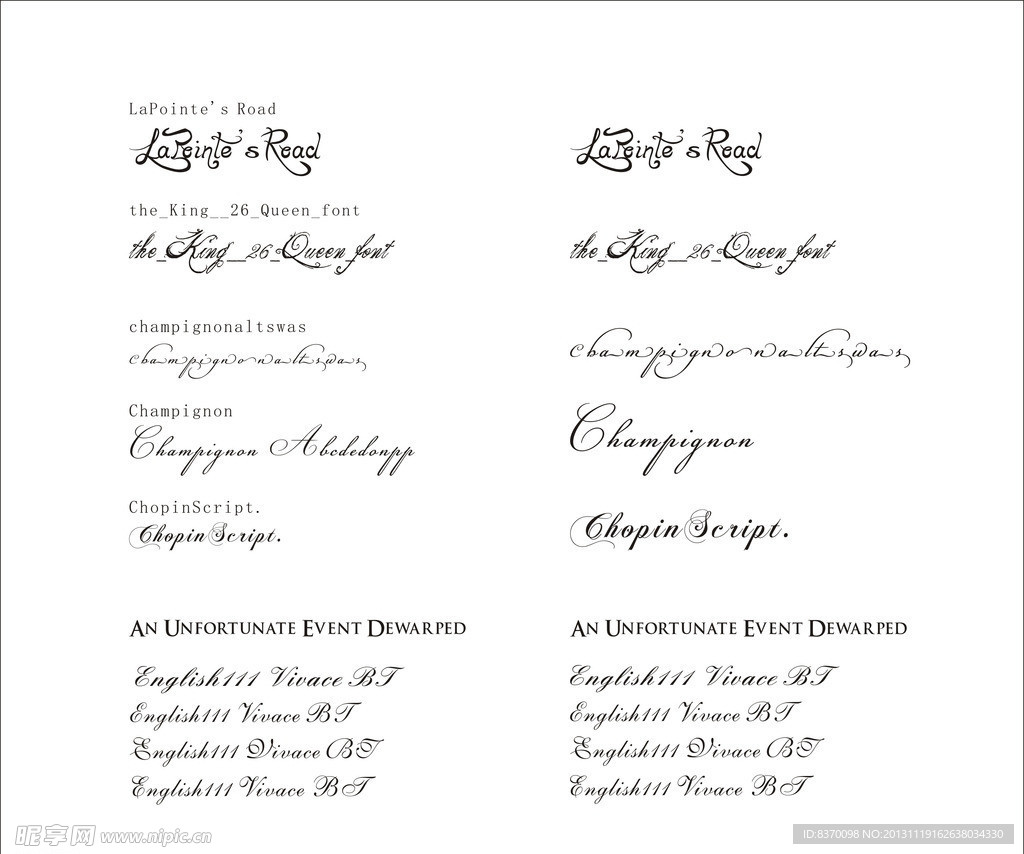 LaPointe's Road
LaPointe's Road LaPointe's Road
the_King__26_Queen_font
the_King__26_Queen_font the_King__26_Queen_font
champignonaltswas
champignonaltswas champignonaltswas
Champignon
Champignon Abcdedonpp Champignon
ChopinScript.
ChopinScript. ChopinScript.
AN UNFORTUNATE EVENT DEWARPED AN UNFORTUNATE EVENT DEWARPED
English111 Vivace BT English111 Vivace BT
English111 Vivace BT English111 Vivace BT
English111 Vivace BT English111 Vivace BT
English111 Vivace BT English111 Vivace BT
昵享网 www.nipic.cn ID:8370098 NO:20131119162638034330